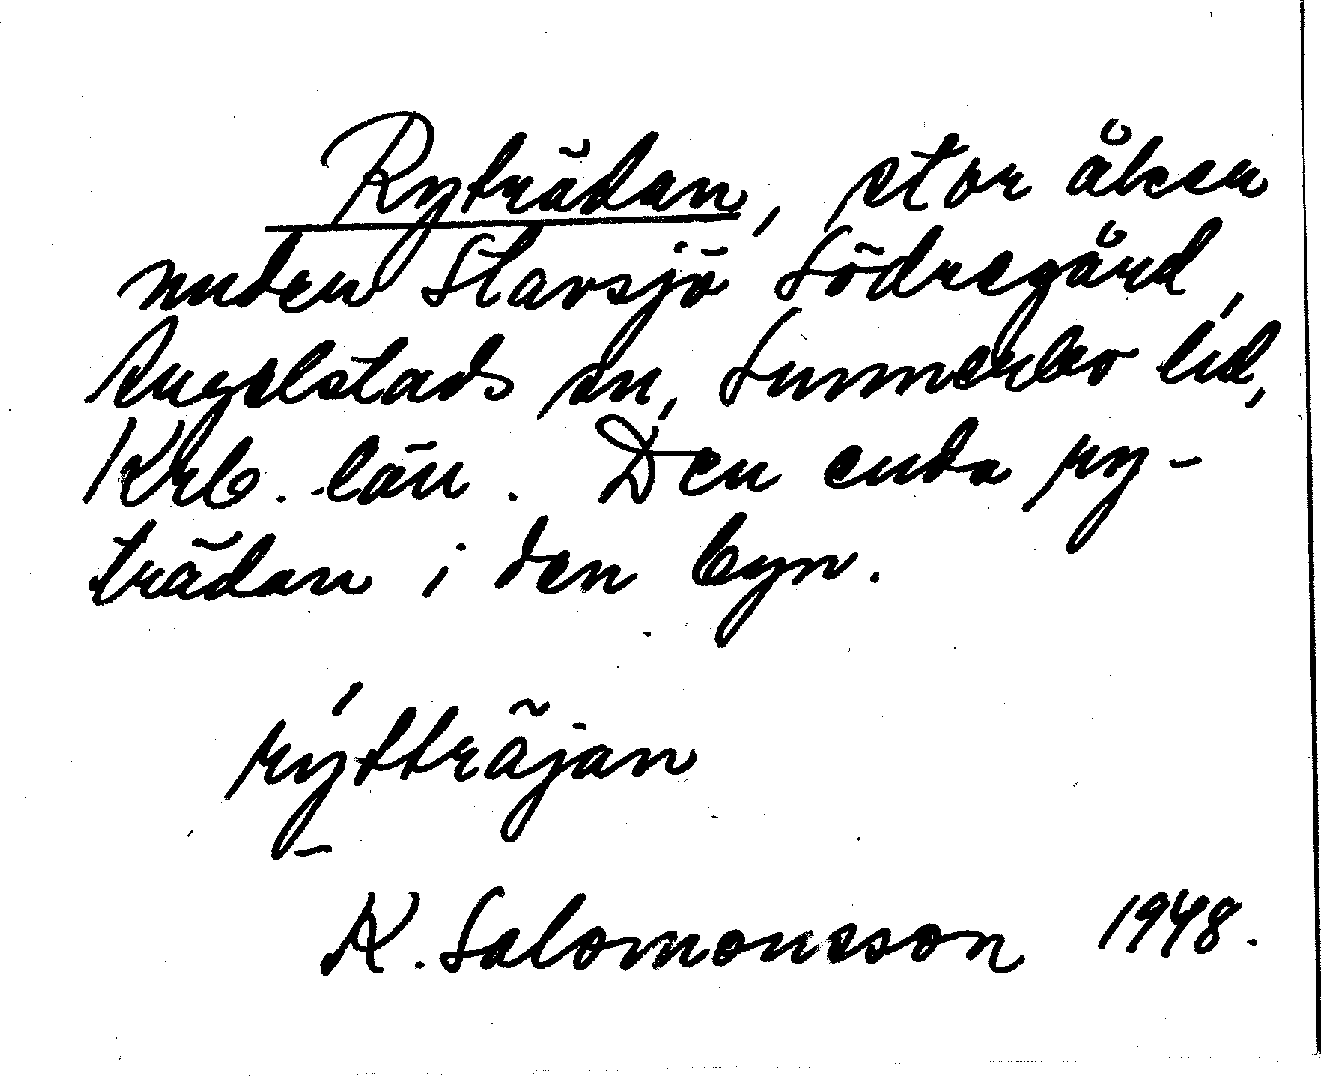 Ryträdan, stor åker
under Slavsjö Södregård,
Angelstads sn, Sunnerbo hd,
Krb. län. Den enda ry-
trädan i den byn.
rýtträ̃jan
K. Salomonsson 1948.